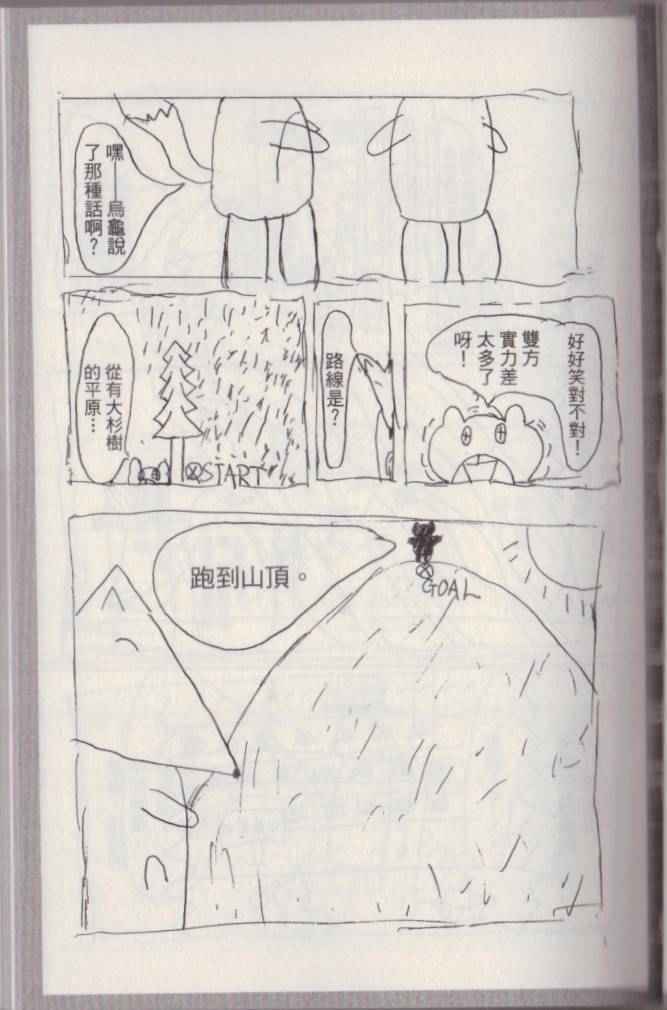 嘿——烏龜說
了那種話啊？
好好笑對不對！
雙方
實力差
太多了
呀！
路線是？
從有大杉樹
的平原…
START
跑到山頂。
GOAL